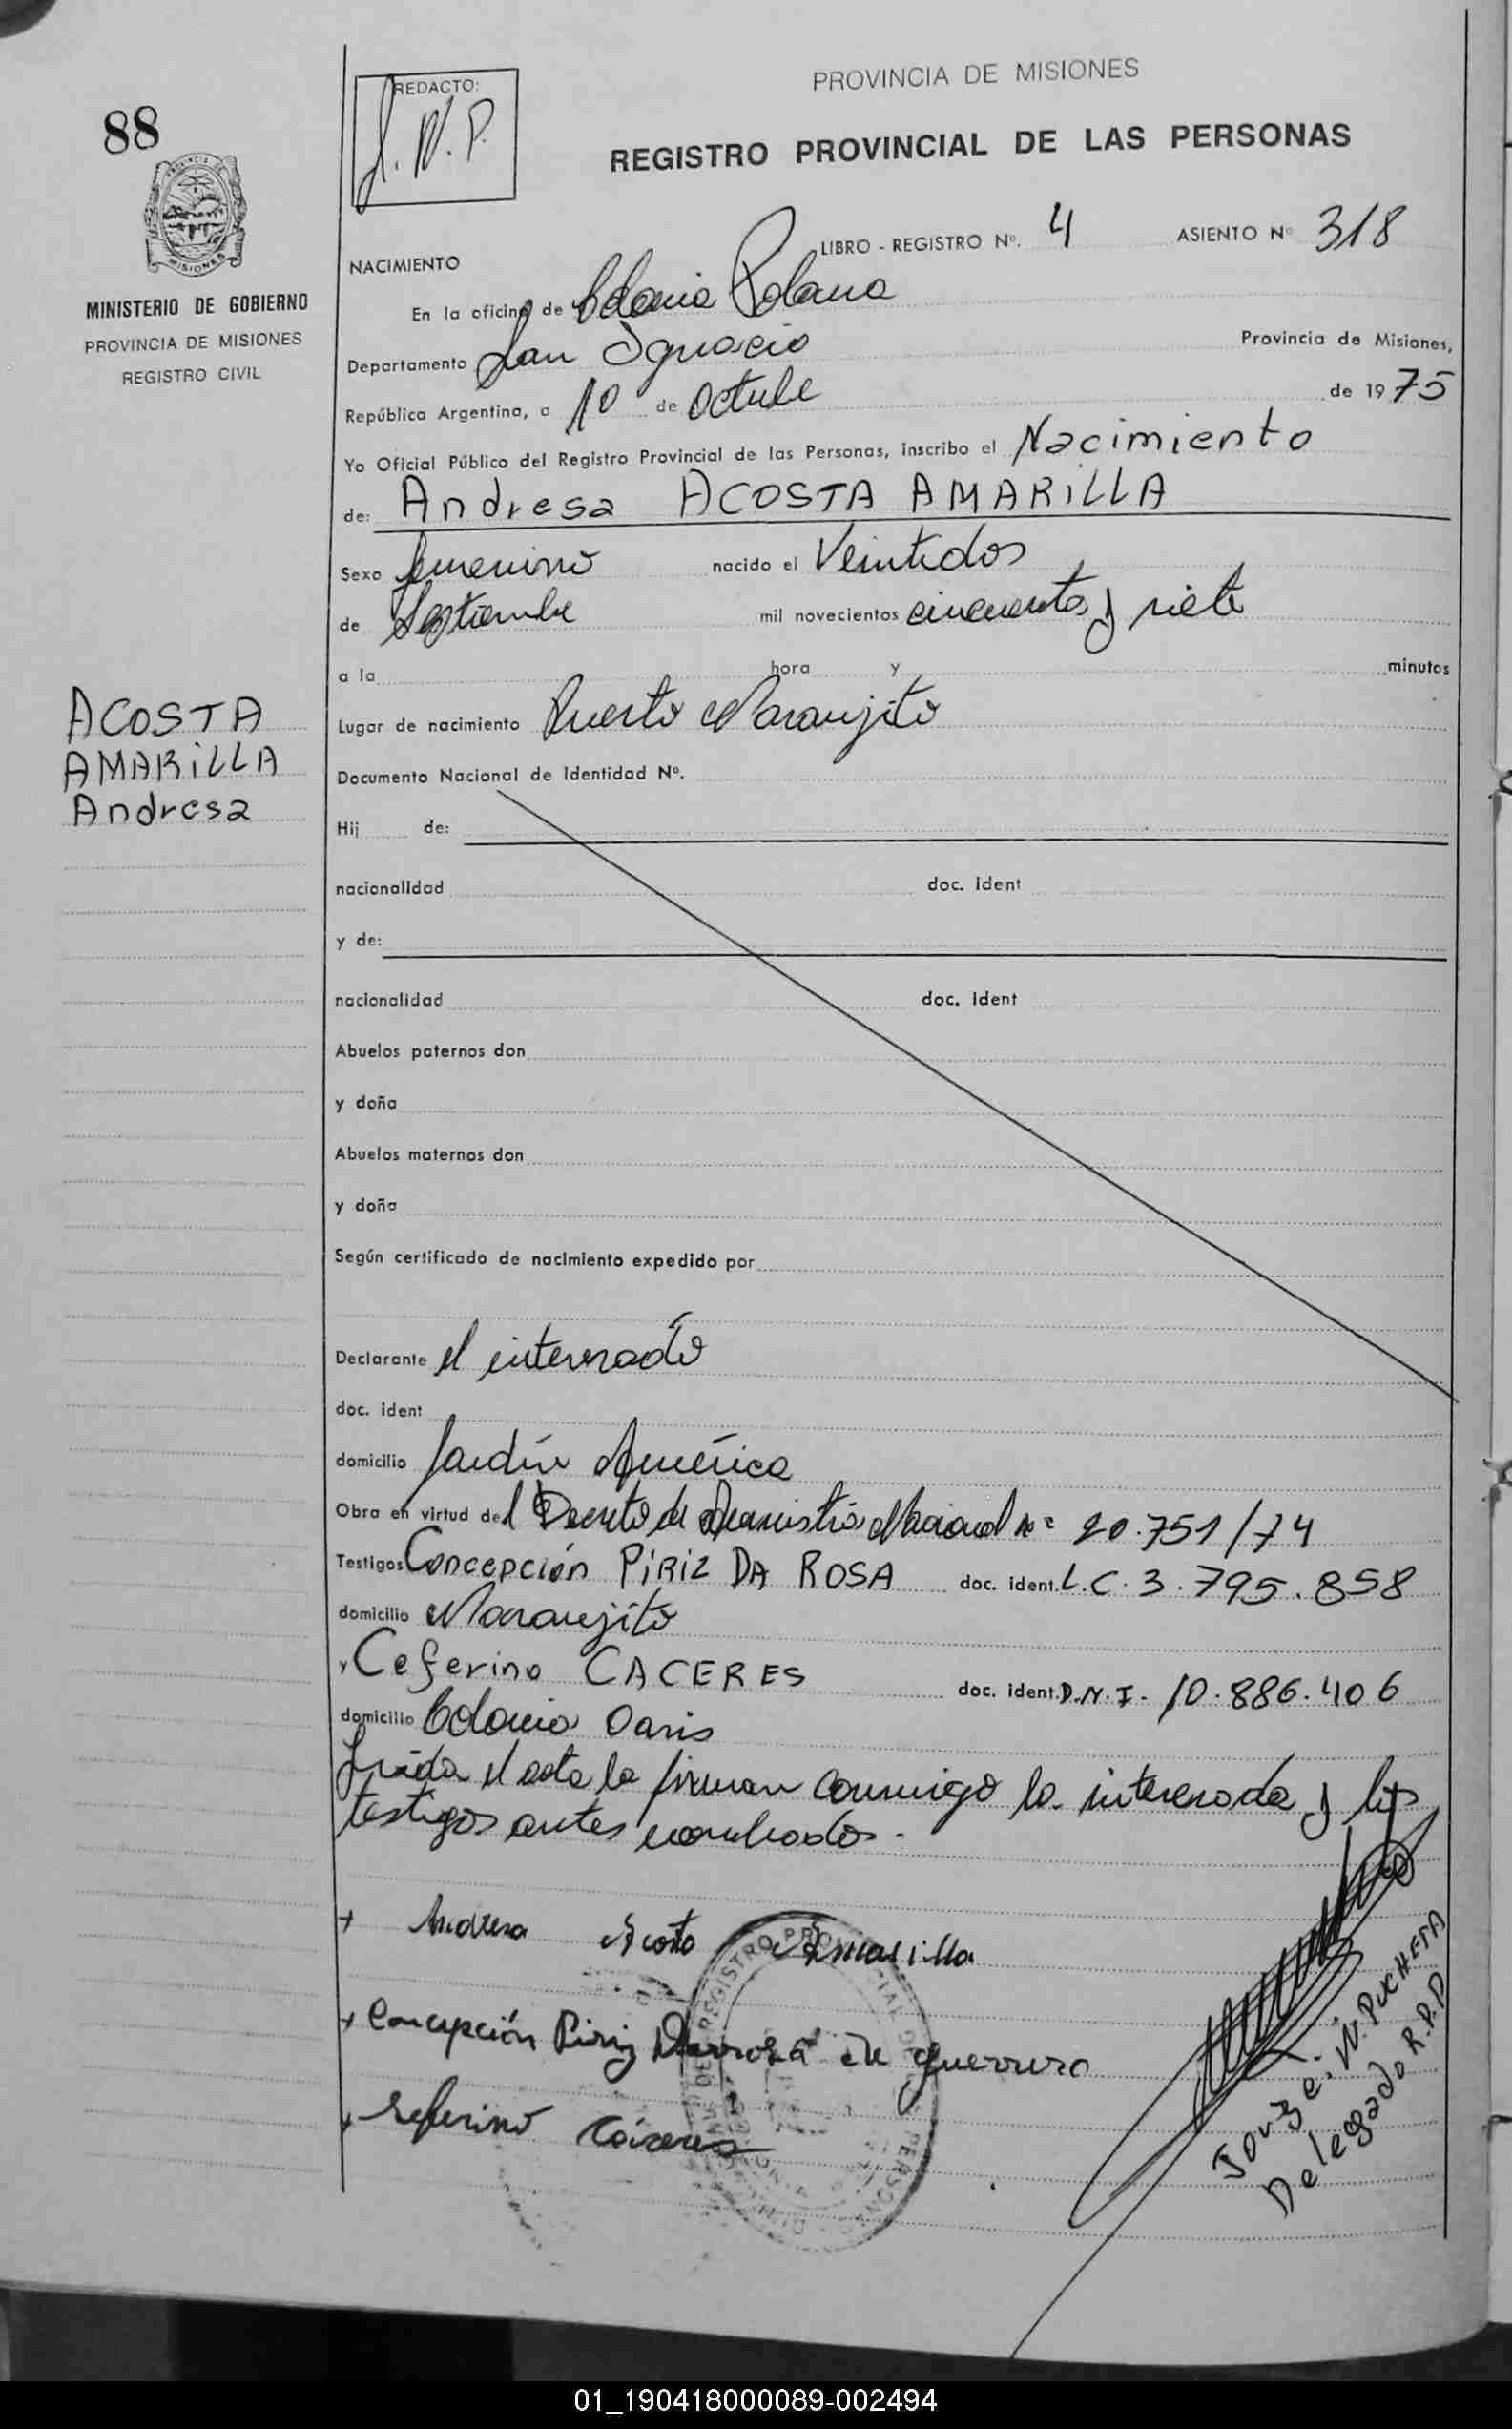 PROVINCIA DE MISIONES
REGISTRO PROVINCIAL DE LAS PERSONAS
88
REDACTO:
J. N. P.
MISIONES
MINISTERIO DE GOBIERNO
PROVINCIA DE MISIONES
REGISTRO CIVIL
ACOSTA
AMARILLA
Andresa
LIBRO - REGISTRO Nº. 4 ASIENTO Nº 318
NACIMIENTO
En la oficina de Colonia Polana
Departamento San Ignacio Provincia de Misiones,
República Argentina, a 10 de Octube de 1975
Yo Oficial Público del Registro Provincial de las Personas, inscribo el Nacimiento
de: Andresa ACOSTA AMARILLA
Sexo femenino nacido el Veintidos
de Septiembe mil novecientos cincuenta y siete
a la hora y minutos
Lugar de nacimiento Puerto Naranjito
Documento Nacional de Identidad Nº.
Hij de:
nacionalidad doc. ident
y de:
nacionalidad doc. ident
Abuelos paternos don
y doña
Abuelos maternos don
y doña
Según certificado de nacimiento expedido por
Declarante el interesado
doc. ident
domicilio Jardín América
Obra en virtud del Decreto de Amnistia Nacional nº 20.751/74
Testigos Concepción PIRIZ DA ROSA doc. ident. L.C. 3.795.858
domicilio Naranjito
y Ceferino CACERES doc. ident. D.N.I. 10.886.406
domicilio Colonia Oasis
leída el acta la firman conmigo la interesada y los
testigos antes nombrados.
Andresa Acosta Amarilla
Concepción Piriz Darrosa de guerrero
Seferino Cáceres
Jorge. N. PUCHETA
Delegado R.P.P
01_190418000089-002494